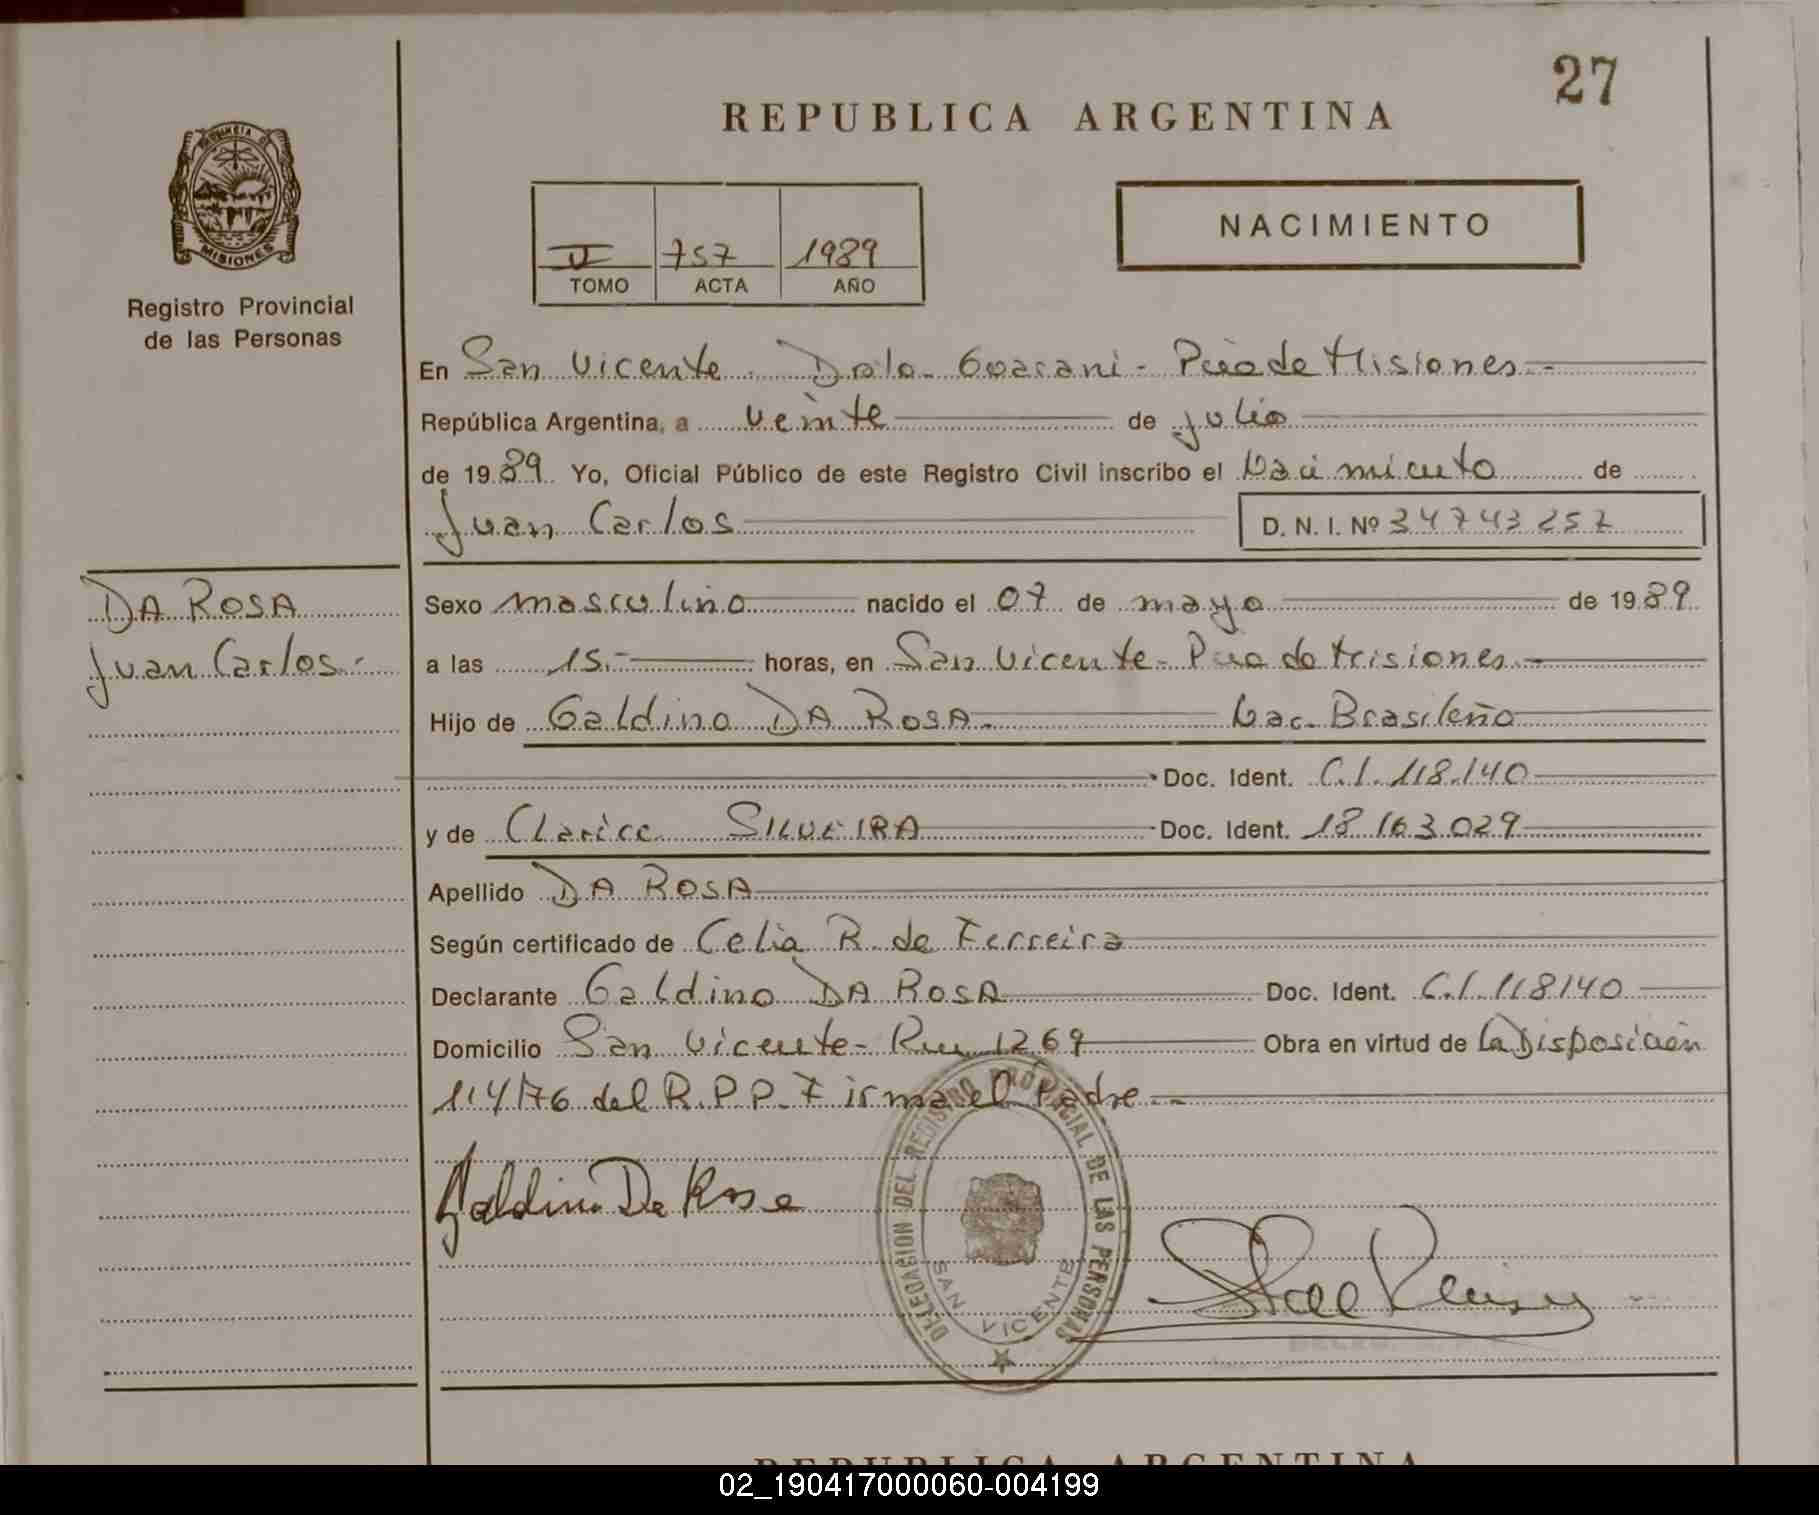 27
REPUBLICA ARGENTINA
PROVINCIA D
MISIONES
Registro Provincial
de las Personas
II 757 1989
TOMO ACTA AÑO
NACIMIENTO
En San Vicente - Dpto. Guarani - Pcia de Misiones.-
República Argentina, a veinte de julio
de 1989. Yo, Oficial Público de este Registro Civil inscribo el Nacimiento de
Juan Carlos D. N. I. Nº 34743257
DA ROSA
Juan Carlos.-
Sexo masculino nacido el 07 de mayo de 1989
a las 15.- horas, en San Vicente - Pcia de Misiones.-
Hijo de Galdino DA ROSA.- Nac. Brasileño
Doc. Ident. C.I. 118.140
y de Clarice SILVEIRA Doc. Ident. 18 163 029
Apellido DA ROSA
Según certificado de Celia R. de Ferreira
Declarante Galdino DA ROSA Doc. Ident. C.I. 118140
Domicilio San Vicente - 1269 Obra en virtud de La Disposición
114/76 del R.P.P. Firma el Padre.-
Galdino Da Rosa
DELEGACION DEL REGISTRO PROVINCIAL DE LAS PERSONAS
SAN VICENTE
REPUBLICA ARGENTINA
02_190417000060-004199